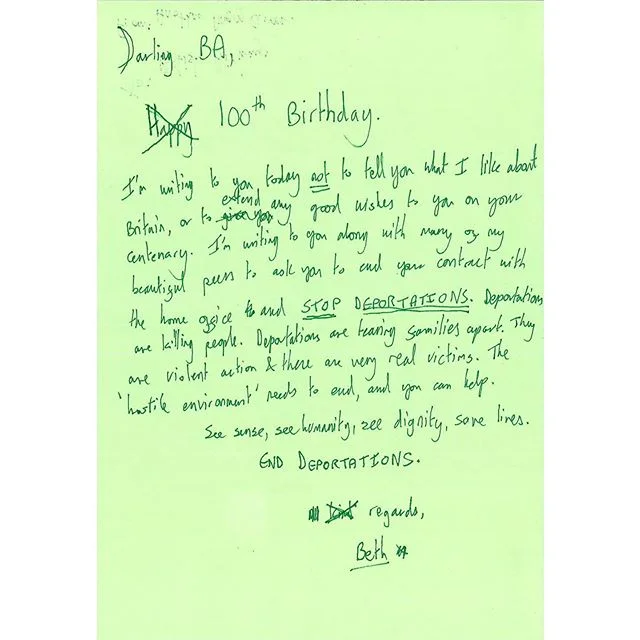 Darling BA,
Happy 100th Birthday.
I'm writing to you today not to tell you what I like about
Britain, or to extend any good wishes to you on your
centenary. I'm writing to you along with many of my
beautiful peers to ask you to end your contract with
the home office and STOP DEPORTATIONS. Deportations
are killing people. Deportations are tearing families apart. They
are violent action & there are very real victims. The
'hostile environment' needs to end, and you can help.
See sense, see humanity, see dignity, save lives.
END DEPORTATIONS.
kind regards,
Beth